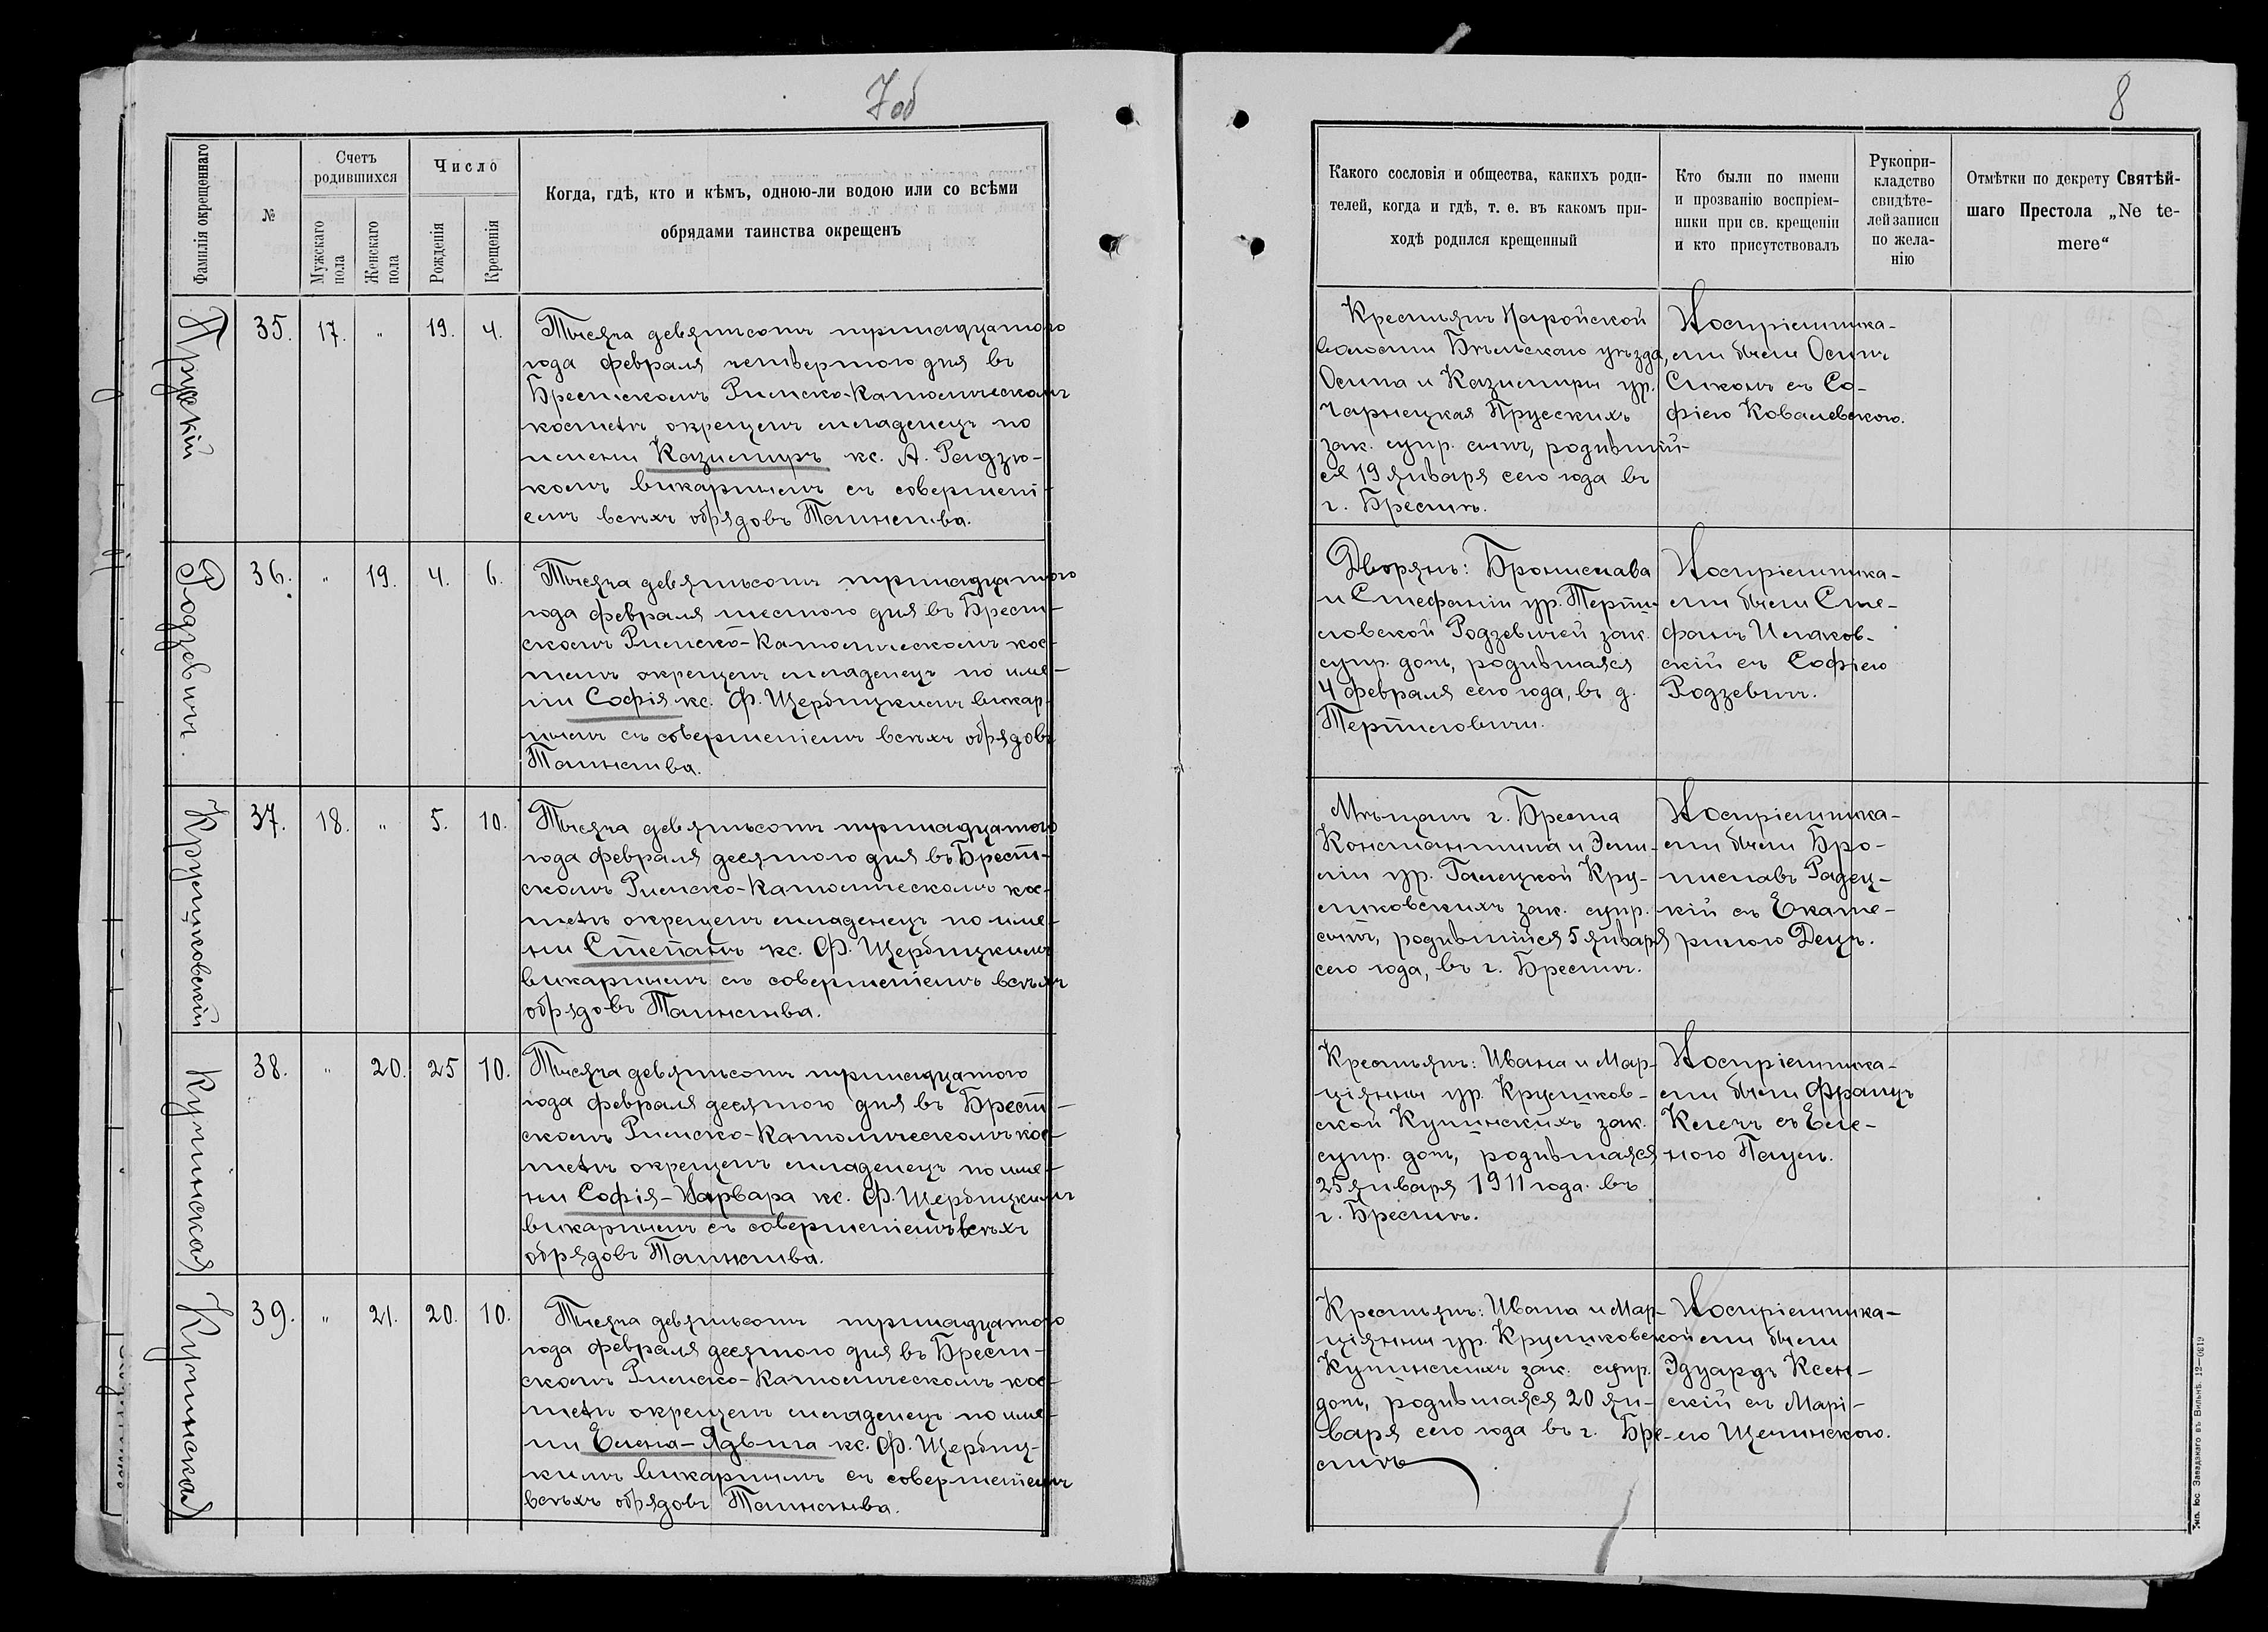 7 об
Фамилія окрещеннаго
№
Счетъ
родившихся
Мужскаго
пола
Женскаго
пола
Число
Рожденія
Крещенія
Когда, гдѣ, кто и кѣмъ, одною-ли водою или со всѣми
обрядами таинства окрещенъ
Прускій
35.
17.
"
19.
4.
Тысяча девятьсотъ тринадцатого
года февраля четвертого дня въ
Брестскомъ Римско-Католическомъ
костелѣ окрещенъ младенецъ по
имени Казимиръ кс. А. Радзю-
комъ викарнымъ съ совершені-
емъ всѣхъ обрядовъ Таинства.
Родзевичъ.
36.
"
19.
4.
6.
Тысяча девятьсотъ тринадцатого
года февраля шестого дня въ Брест-
скомъ Римско-Католическомъ кос-
телѣ окрещенъ младенецъ по име-
ни Софія кс. Ф. Щербицкимъ викар-
нымъ съ совершеніемъ всѣхъ обрядовъ
Таинства.
Круликовскій
37.
18.
"
5.
10.
Тысяча девятьсотъ тринадцатого
года февраля десятого дня въ Брест-
скомъ Римско-Католическомъ кос-
телѣ окрещенъ младенецъ по име-
ни Степанъ кс. Ф. Щербицкимъ
викарнымъ съ совершеніемъ всѣхъ
обрядовъ Таинства.
Купинская
38.
"
20.
25
10.
Тысяча девятьсотъ тринадцатого
года февраля десятого дня въ Брест-
скомъ Римско-Католическомъ кос-
телѣ окрещенъ младенецъ по име-
ни Софія-Варвара кс. Ф. Щербицкимъ
викарнымъ съ совершеніемъ всѣхъ
обрядовъ Таинства.
Купинская
39.
"
21.
20.
10.
Тысяча девятьсотъ тринадцатого
года февраля десятого дня въ Брест-
скомъ Римско-Католическомъ кос-
телѣ окрещенъ младенецъ по име-
ни Елена-Ядвига кс. Ф. Щербиц-
кимъ викарнымъ съ совершеніемъ
всѣхъ обрядовъ Таинства.
8
Какого сословія и общества, какихъ роди-
телей, когда и гдѣ, т. е. въ какомъ при-
ходѣ родился крещенный
Кто были по имени
и прозванію воспріем-
ники при св. крещеніи
и кто присутствовалъ
Рукопри-
кладство
свидѣте-
лей записи
по жела-
нію
Отмѣтки по декрету Святѣй-
шаго Престола „Ne te-
mere“
Крестьянъ Наройской
волости Бѣльскаго уѣзда,
Осипа и Казимиры ур.
Чарнецкая Прусскихъ
зак. супр. сынъ, родившій-
ся 19 января сего года въ
г. Брестѣ.
Воспріемника-
ми были Осипъ
Сикомъ съ Со-
фіею Ковалевскою.
Дворянъ: Бронислава
и Стефаніи ур. Терпи-
ловской Родзевичей зак.
супр. дочь, родившаяся
4 февраля сего года, въ д.
Терпиловичи.
Воспріемника-
ми были Сте-
фанъ Ислаков-
скій съ Софіею
Родзевичъ.
Мѣщанъ г. Бреста
Константина и Эми-
ліи ур. Галецкой Кру-
ликовскихъ зак. супр.
сынъ, родившійся 5 января
сего года, въ г. Брестѣ.
Воспріемника-
ми были Бро-
ниславъ Радец-
кій съ Екате-
риною Децъ.
Крестьянъ: Ивана и Мар-
ціянны ур. Круликов-
ской Купинскихъ зак.
супр. дочь, родившаяся
25 января 1911 года въ
г. Брестѣ.
Воспріемника-
ми были Францъ
Келечъ съ Еле-
ною Пацъ.
Крестьянъ: Ивана и Мар-
ціянны ур. Круликовской
Купинскихъ зак. супр.
дочь, родившаяся 20 ян-
варя сего года въ г. Бре-
стѣ
Воспріемника-
ми были
Эдуардъ Ксен-
скій съ Марі-
ею Щепинскою.
Тип. Іос. Завадзкаго въ Вильнѣ. 12—0319